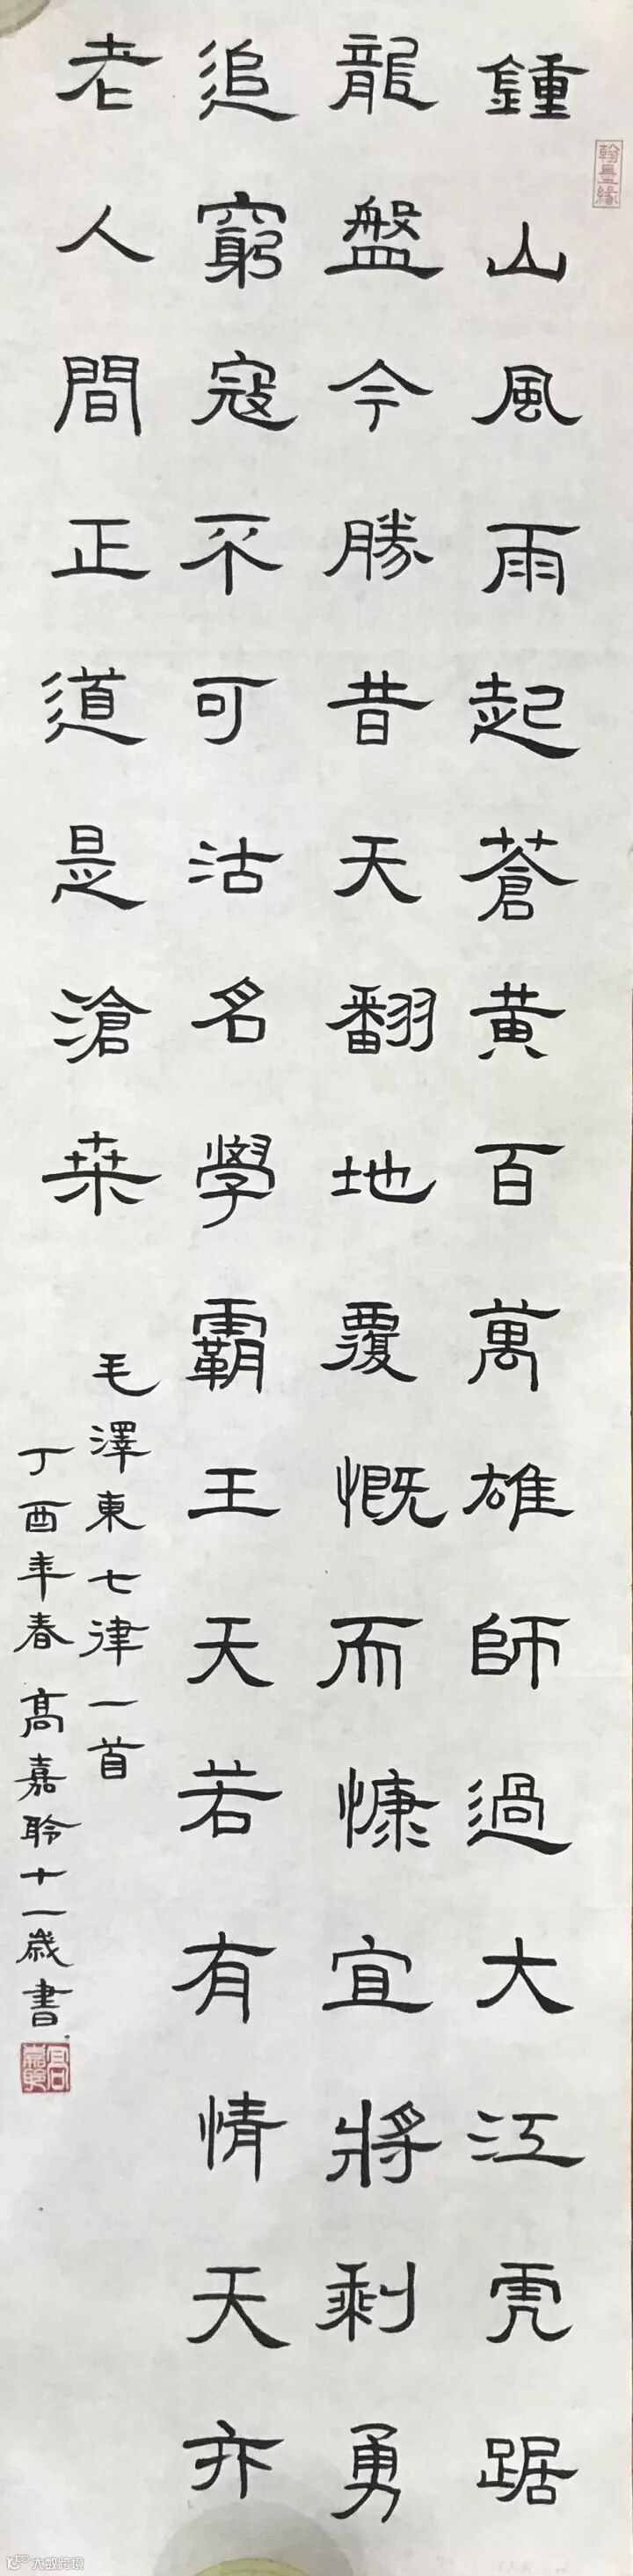 鍾山風雨起蒼黄百萬雄師過大江虎踞
龍盤今勝昔天翻地覆慨而慷宜將剩勇
追窮寇不可沽名學霸王天若有情天亦
老人間正道是滄桒
毛澤東七律一首
丁酉年春髙嘉聆十一歲書
翰墨緣
高嘉聆
大数跨境